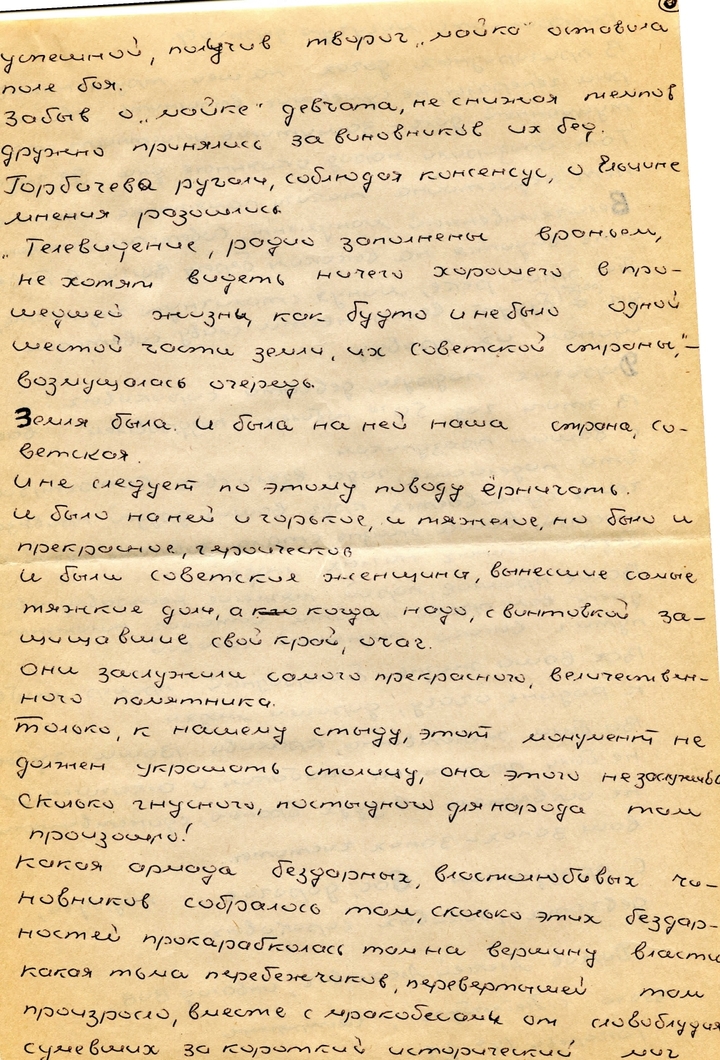 успешной, получив творог „майка" оставила
поле боя.
Забыв о „майке" девчата, не снижая темпов
дружно принялись за виновников их бед.
Горбачева ругали, соблюдая консенсус, о Ельцине
мнения разошлись
„Телевидение, радио заполнены враньем,
не хотят видеть ничего хорошего в про-
шедшей жизни, как будто и не было одной
шестой части земли, их Советской страны," –
возмущалась очередь.
Земля была. И была на ней наша страна, со-
ветская.
И не следует по этому поводу ёрничать.
И было на ней и горькое, и тяжелое, но было и
прекрасное, героическое
И были советские женщины, вынесшие самые
тяжкие доли, а когда надо, с винтовкой за-
щищавшие свой край, очаг.
Они заслужили самого прекрасного, величествен-
ного памятника.
Только, к нашему стыду, этот монумент не
должен украшать столицу, она этого не заслужила
Сколько гнусного, постыдного для народа там
произошло!
Какая армада бездарных, властолюбивых чи-
новников собралась там, сколько этих бездар-
ностей прокарабкалась там на вершину власти
какая тьма перебежчиков, перевертышей там
произросло, вместе с мракобесами от словоблудия
сумевших за короткий исторический миг